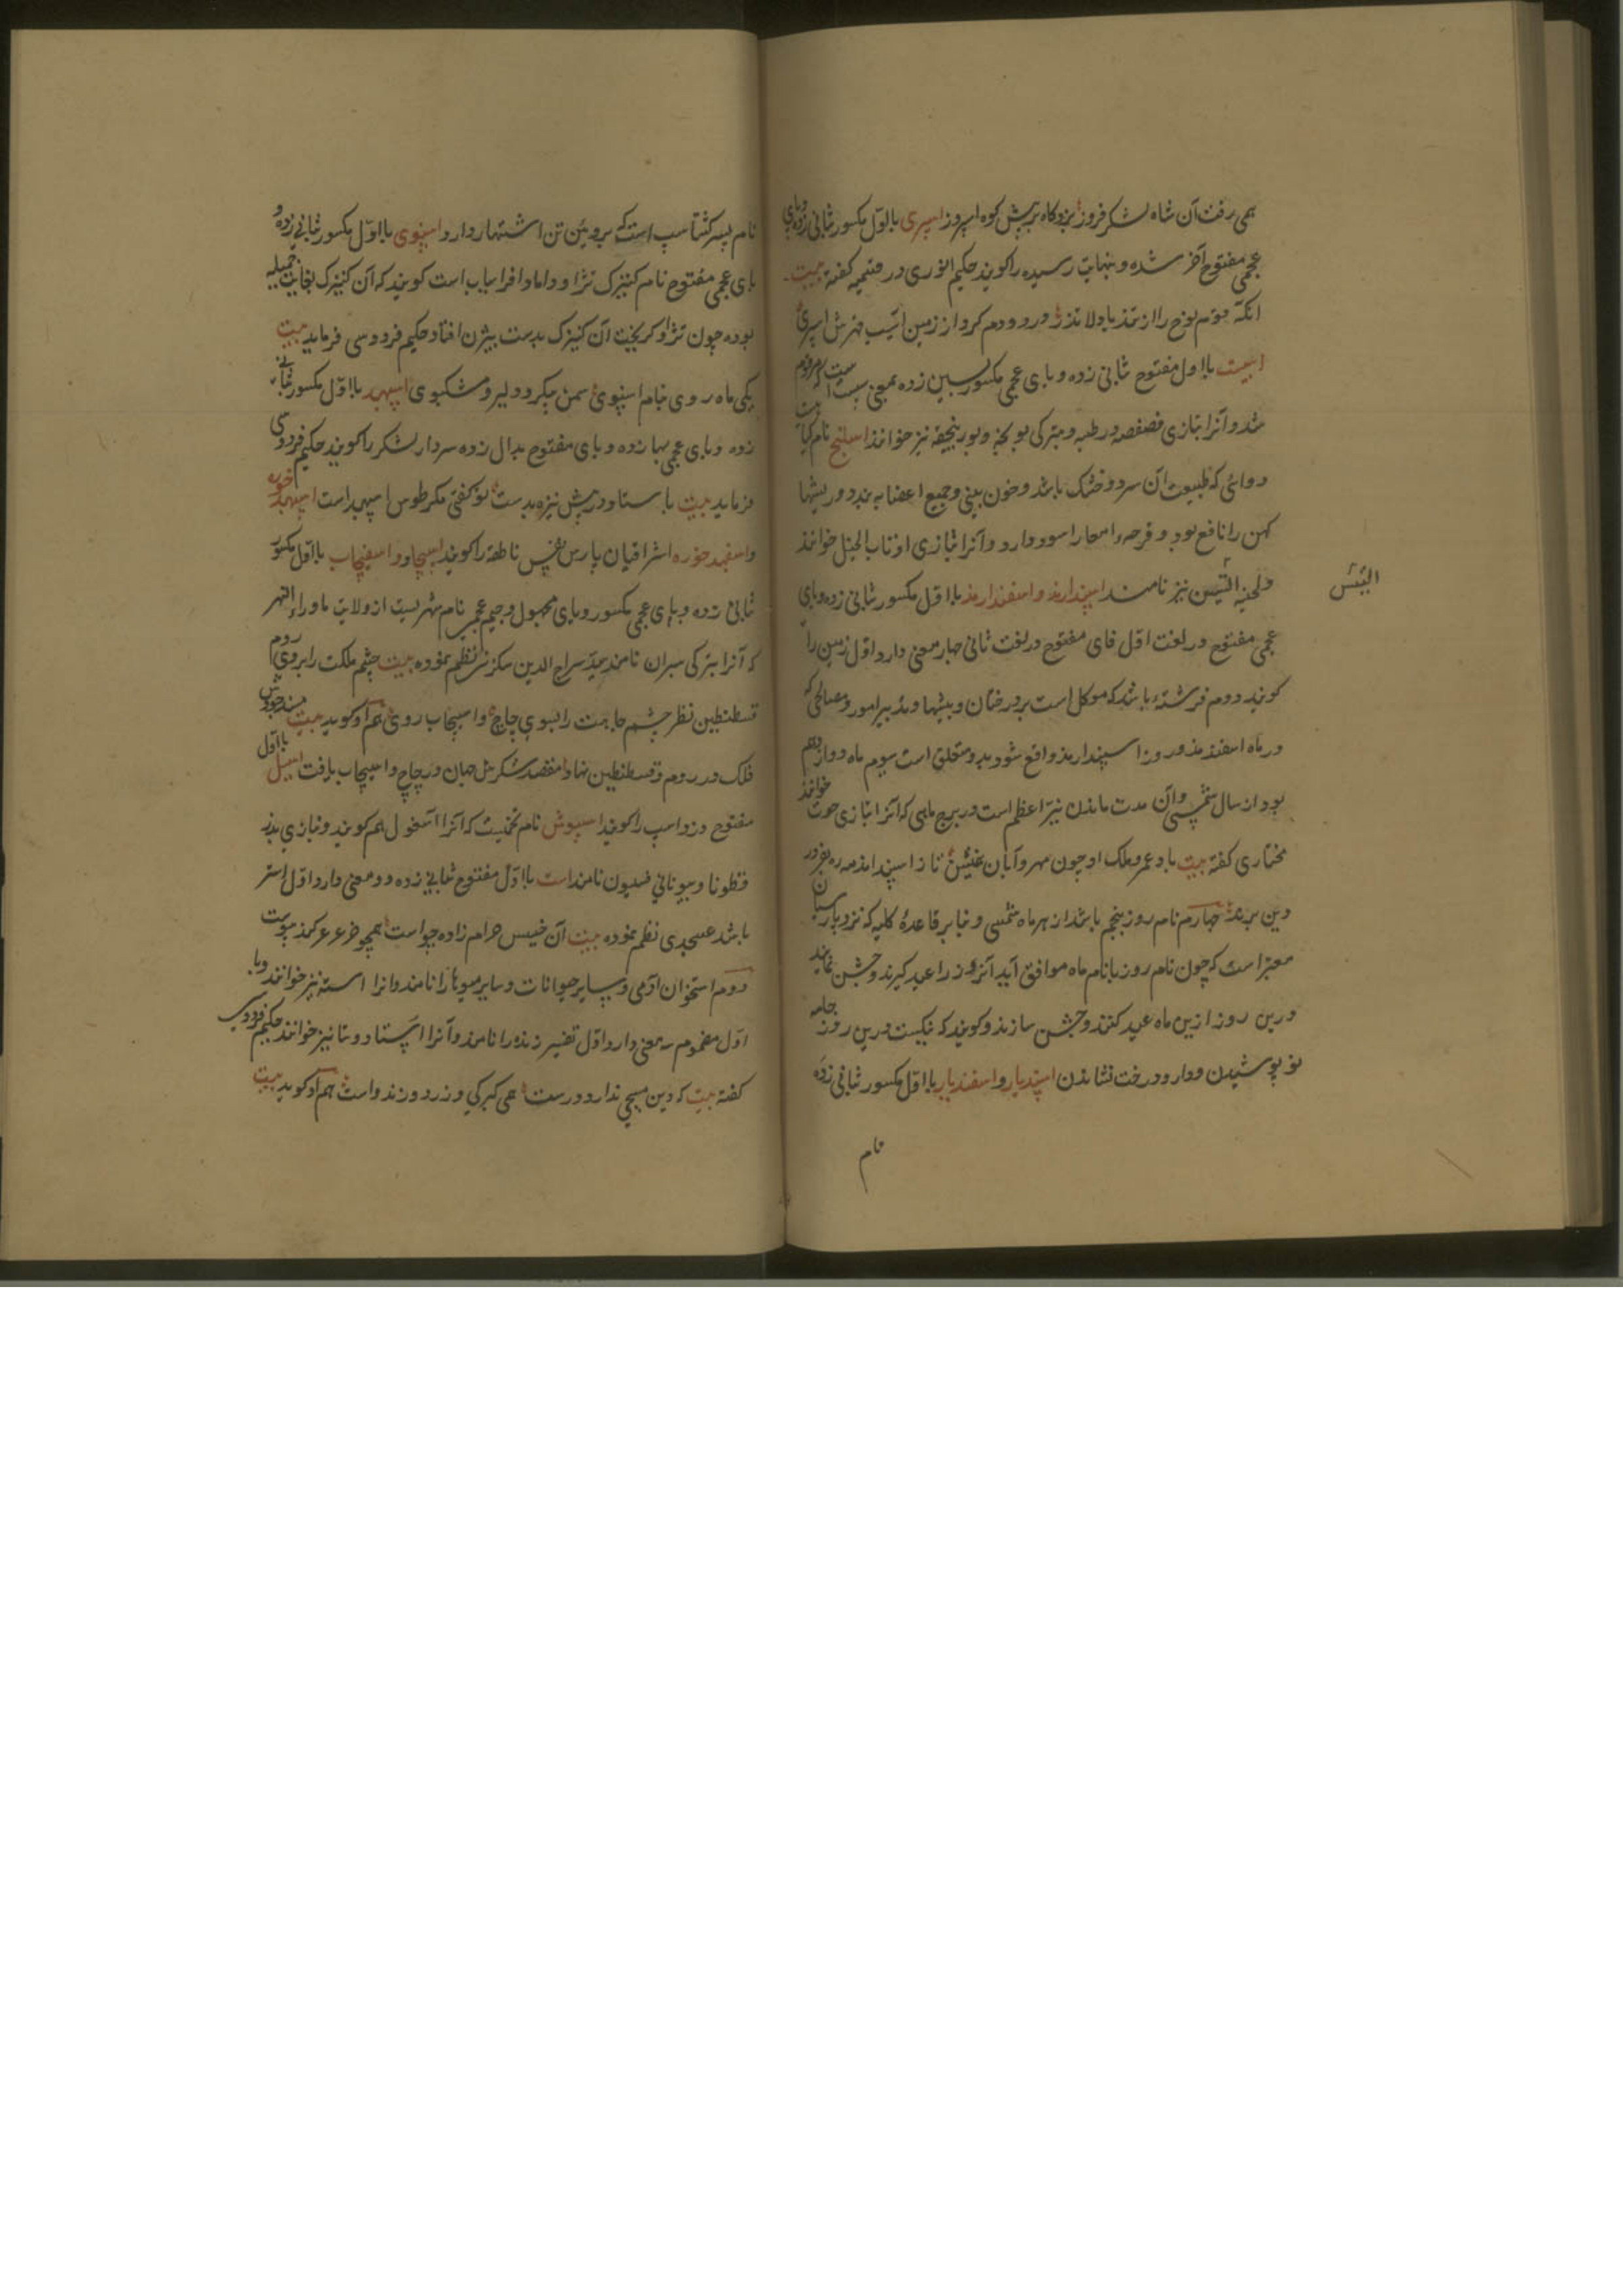 همی رفت آن شاه لشکر فروز بزد کاه برپیش کوه اسپروز اسپری با اول مکسور ثانی زده و بای
عجمی مفتوح آخر شده و بنهایت رسیده را کویند حکیم انوری در قسمیه کفته بیت
انکه قوم نوح را از تند باد لا تذر در دو دم کرد از زمین آسیب قهرش اسپری
اسپست با اول مفتوح ثانی زده و بای عجمی مکسور بسین زده بمعنی سبست است که مرقوم
شد و آنرا بتازی فصفصه و رطبه و بترکی یونجه و یورینجقه نیز خوانند اسپلنج نام کیاهیست
دوائی که طبیعت آن سرد و خشک باشد و خون بینی و جمیع اعضا به بندد و ریشها
کهن را نافع بود و قرحه امعا را سود دارد و آنرا بتازی اذناب الخیل خوانند
و لحیه التیس نیز نامند اسپندارمذ و اسفندارمذ با اول مکسور ثانی زده و بای
التیس
عجمی مفتوح در لغت اول فای مفتوح در لغت ثانی چهار معنی دارد اول زمین را
کویند دوم فرشته باشد که موکل است بر درختان و بیشها و تدبیر امور و مصالحی که
در ماه اسفندمذ و روز اسپندارمذ واقع شود بدو متعلق است سیوم ماه دوازدهم
بود از سال شمسی و آن مدت ماندن نیر اعظم است در برج ماهی که آنرا بتازی حوت خوانند
مختاری کفته بیت باد عمر و ملک او چون مهر و آبان تا ز اسپندارمذ مه فرور
دین بردمد چهارم نام روز پنجم باشد از هر ماه شمسی و بنا بر قاعدهٔ کلیه که نزد پارسیان
معتبر است که چون نام روز با نام ماه موافق آید آنروز را عید کیرند و جشن نمایند
درین روز ازین ماه عید کنند و جشن سازند و کویند که نیکست درین روز جامه
نو پوشیدن و درخت نشاندن اسپندیار و اسفندیار با اول مکسور ثانی زده
نام
نام پسر کشتاسپ است که بروئین تن اشتهار دارد اسپنوی با اول مکسور ثانی زده و
بای عجمی مفتوح نام کنیزک تژاو داماد افراسیاب است کویند که آن کنیزک بغایت جمیله
بوده چون تژاو کریخت آن کنیزک بدست بیژن افتاد حکیم فردوسی فرماید بیت
یکی ماه روی بنام اسپنوی سمن پیکر و دلبر و مشکبوی اسپهبد با اول مکسور ثانی
زده و بای عجمی بها زده و بای مفتوح بدال زده سردار لشکر را کویند حکیم فردوسی
فرماید بیت باستاد در پیش نیزه بدست تو کفتی مکر طوس اسپهبد است اسپهبد خوره
و اسفهبد خوره اشراقیان پارس نفس ناطقه را کویند اسپیجاب و اسفیجاب با اول مکسور
ثانی زده و بای عجمی مکسور و یای مجهول و جیم عجمی نام شهریست از ولایت ماوراء النهر
که آنرا بترکی سیران نامند سید سراج الدین سکزی نظم نموده بیت چشم ملکت را بروی روم
قسطنطین نظر چشم جاهت را بسوی چاچ و اسپیجاب روی هم او کوید بیت
فلک در روم و قسطنطین نهاد چاچ و اسپیجاب یافت اسپیل با اول
مفتوح دزد اسپ را کویند اسپیوش نام تخمیست که آنرا اسفول هم کویند و بتازی بذر
قطونا و بیونانی فسلیون نامند است با اول مفتوح ثانی زده دو معنی دارد اول استر
باشد عسجدی نظم نموده بیت آن خسیس حرام زاده چو است همچو خر عرعر کند پیوست
دوم استخوان آدمی و سایر حیوانات و سایر میوها را نامند و انرا استه نیز خوانند و با
اول مضموم سه معنی دارد اول تفسیر زند را نامند و آنرا اپستا و وستا نیز خوانند حکیم فردوسی
کفته بیت که دین مسیحی ندارد درست همی کبرکی ورزد و زند و است هم او کوید بیت